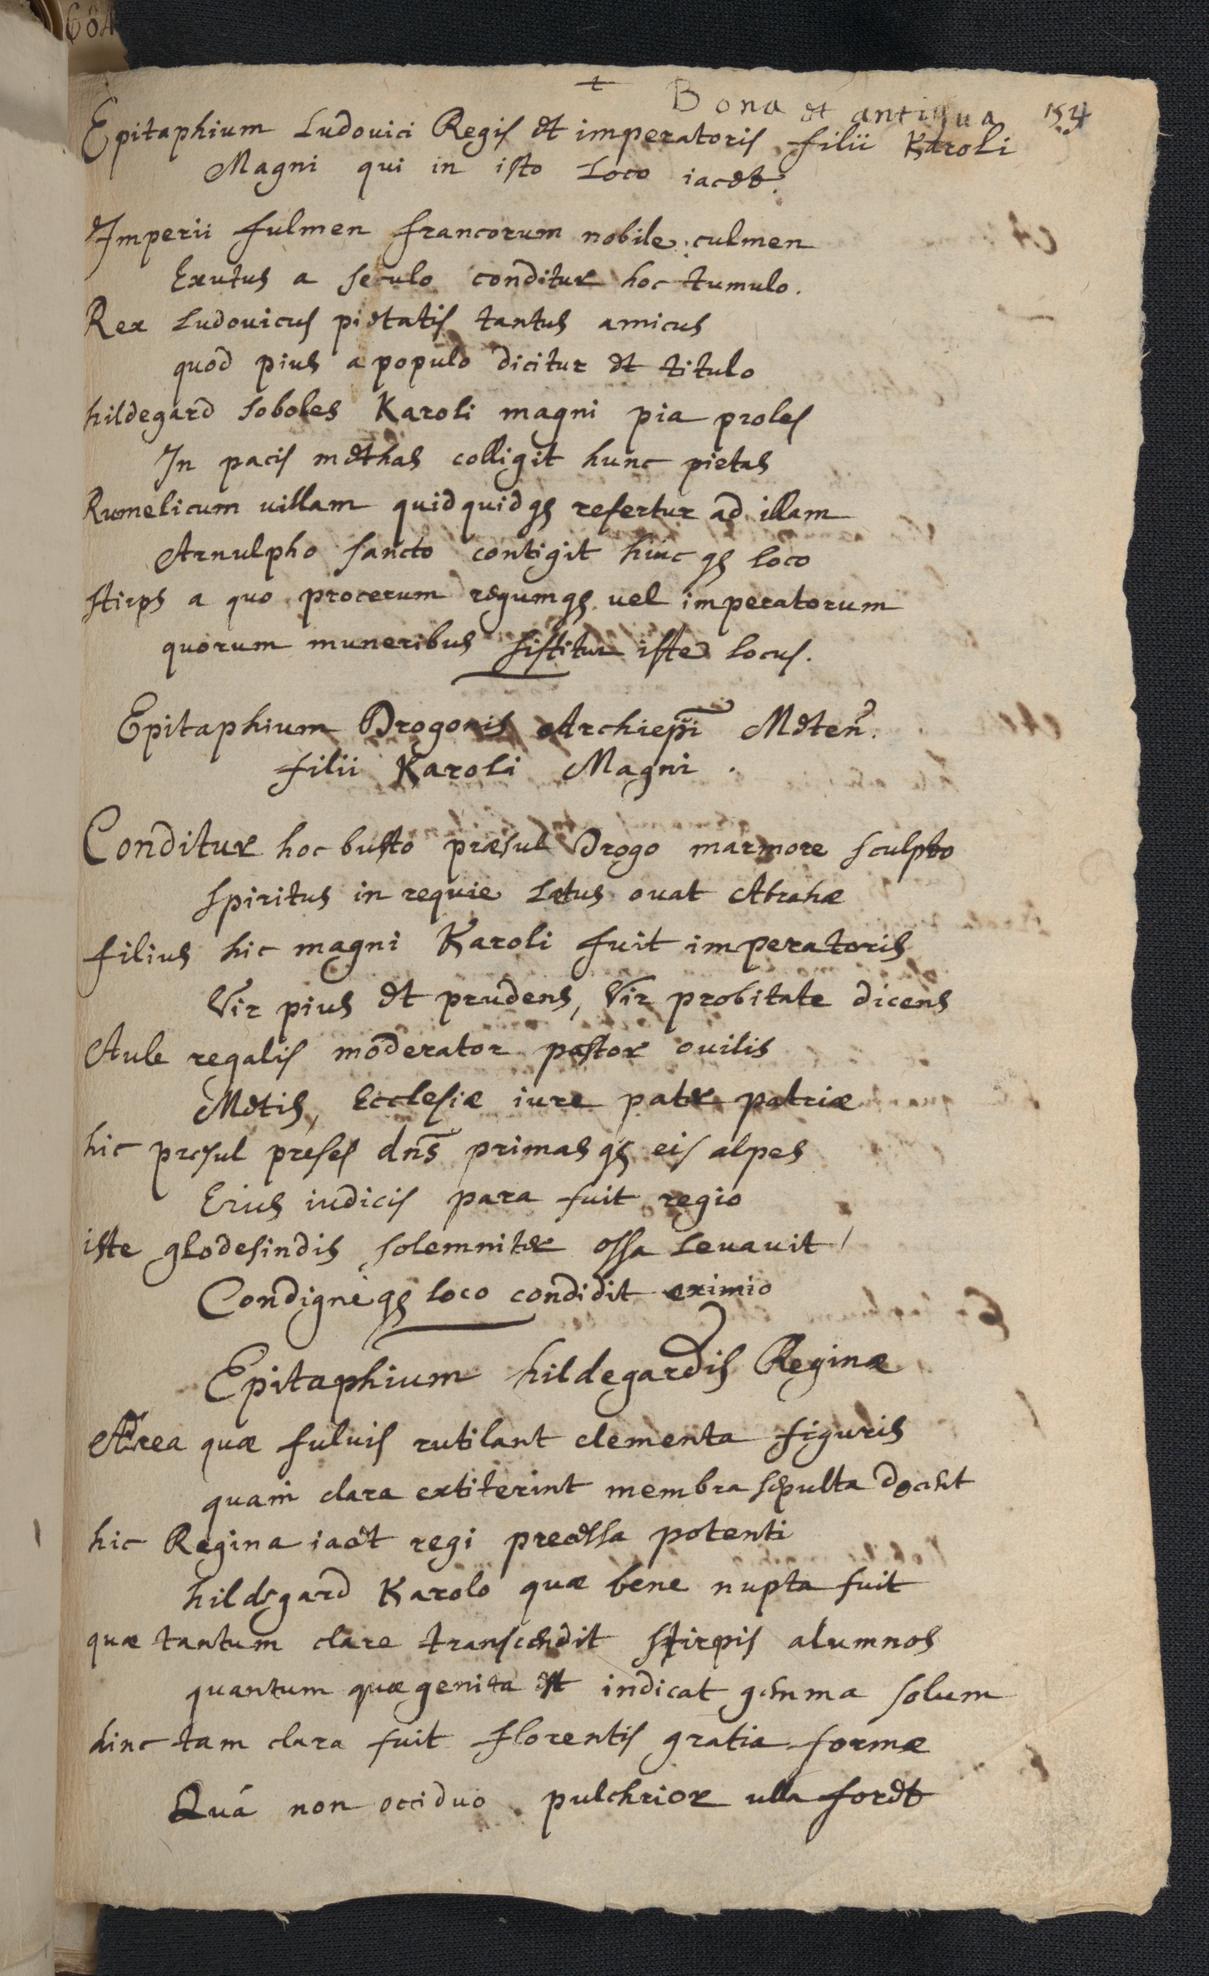 684
+
Bona et antiqua
154
Epitaphium Ludouici Regis et imperatoris filii Karoli
Magni qui in isto Loco iacet.
Imperii fulmen francorum nobile culmen
Exutus a seculo conditur hoc tumulo.
Rex Ludouicus pietatis tantus amicus
quod pius a populo dicitur et titulo
hildegard soboles Karoli magni pia proles
In pacis methas colligit hunc pietas
Rumelicum uillam quidquidqs refertur ad illam
Arnulpho sancto contigit huicqs loco
stirps a quo procerum regumqs uel imperatorum
quorum muneribus sistitur iste locus.
Epitaphium Drogonis Archiepi Meten.
filii Karoli Magni.
Conditur hoc busto præsul Drogo marmore sculpto
spiritus in requie Letus ouat Abrahæ
filius hic magni Karoli fuit imperatoris
Vir pius et prudens, Vir probitate dicens
Aule regalis moderator pastor ouilis
Metis, Ecclesiæ iure pater patriæ
hic presul preses dns primasqs eis alpes
Eius iudicis para fuit regio
iste glodesindis solemniter ossa Leuauit /
Condignèqs loco condidit eximio
Epitaphium hildegardis Reginæ
quæ fuluis rutilant elementa figuris
quam clara extiterint membra sepulta docent
hic Regina iacet regi precelsa potenti
hildegard Karolo quæ bene nupta fuit
quæ tantum clare transcendit stirpis alumnos
quantum quæ genita est indicat gemma solum
hinc tam clara fuit florentis gratia formæ
Quá non occiduo pulchrior ulla foret